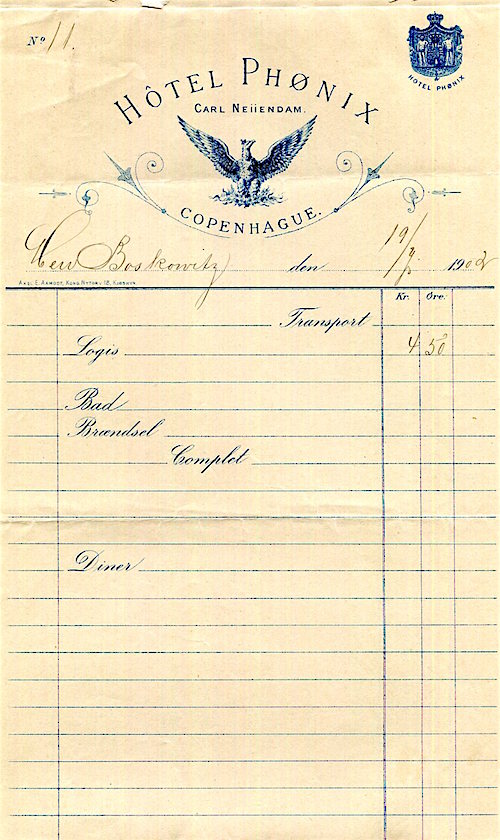 Nº 11.
HOTEL PHØNIX
HÔTEL PHØNIX
CARL NEIIENDAM.
COPENHAGUE.
Boskowitz den 19/7 1902
AXEL E. AAMODT, KONG. NYTORV 18, KJØBHVN.
Kr. Øre.
Transport
Logis 4 50
Bad
Brændsel
Complet
Diner